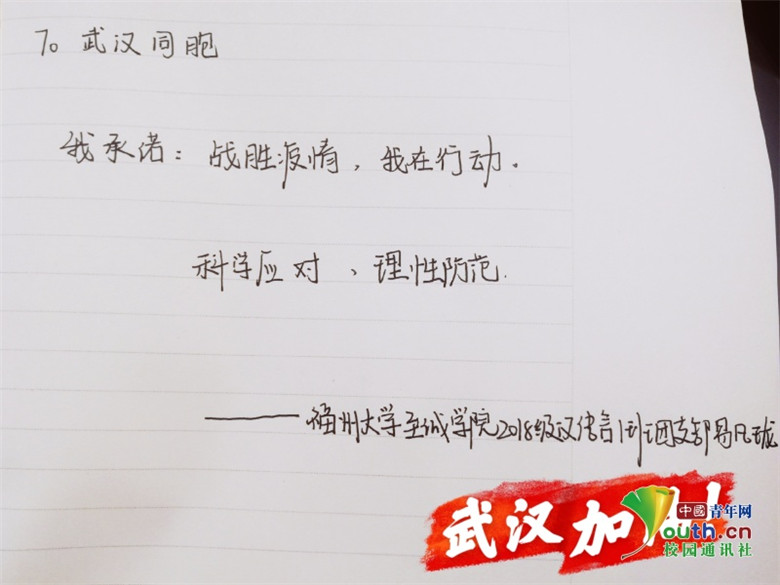 To 武汉同胞
我承诺：战胜疫情，我在行动.
科学应对、理性防范.
——福州大学至诚学院2018级汉语言1班团支部易凡珑
武汉加油!
中國青年网
Youth.cn
校园通讯社